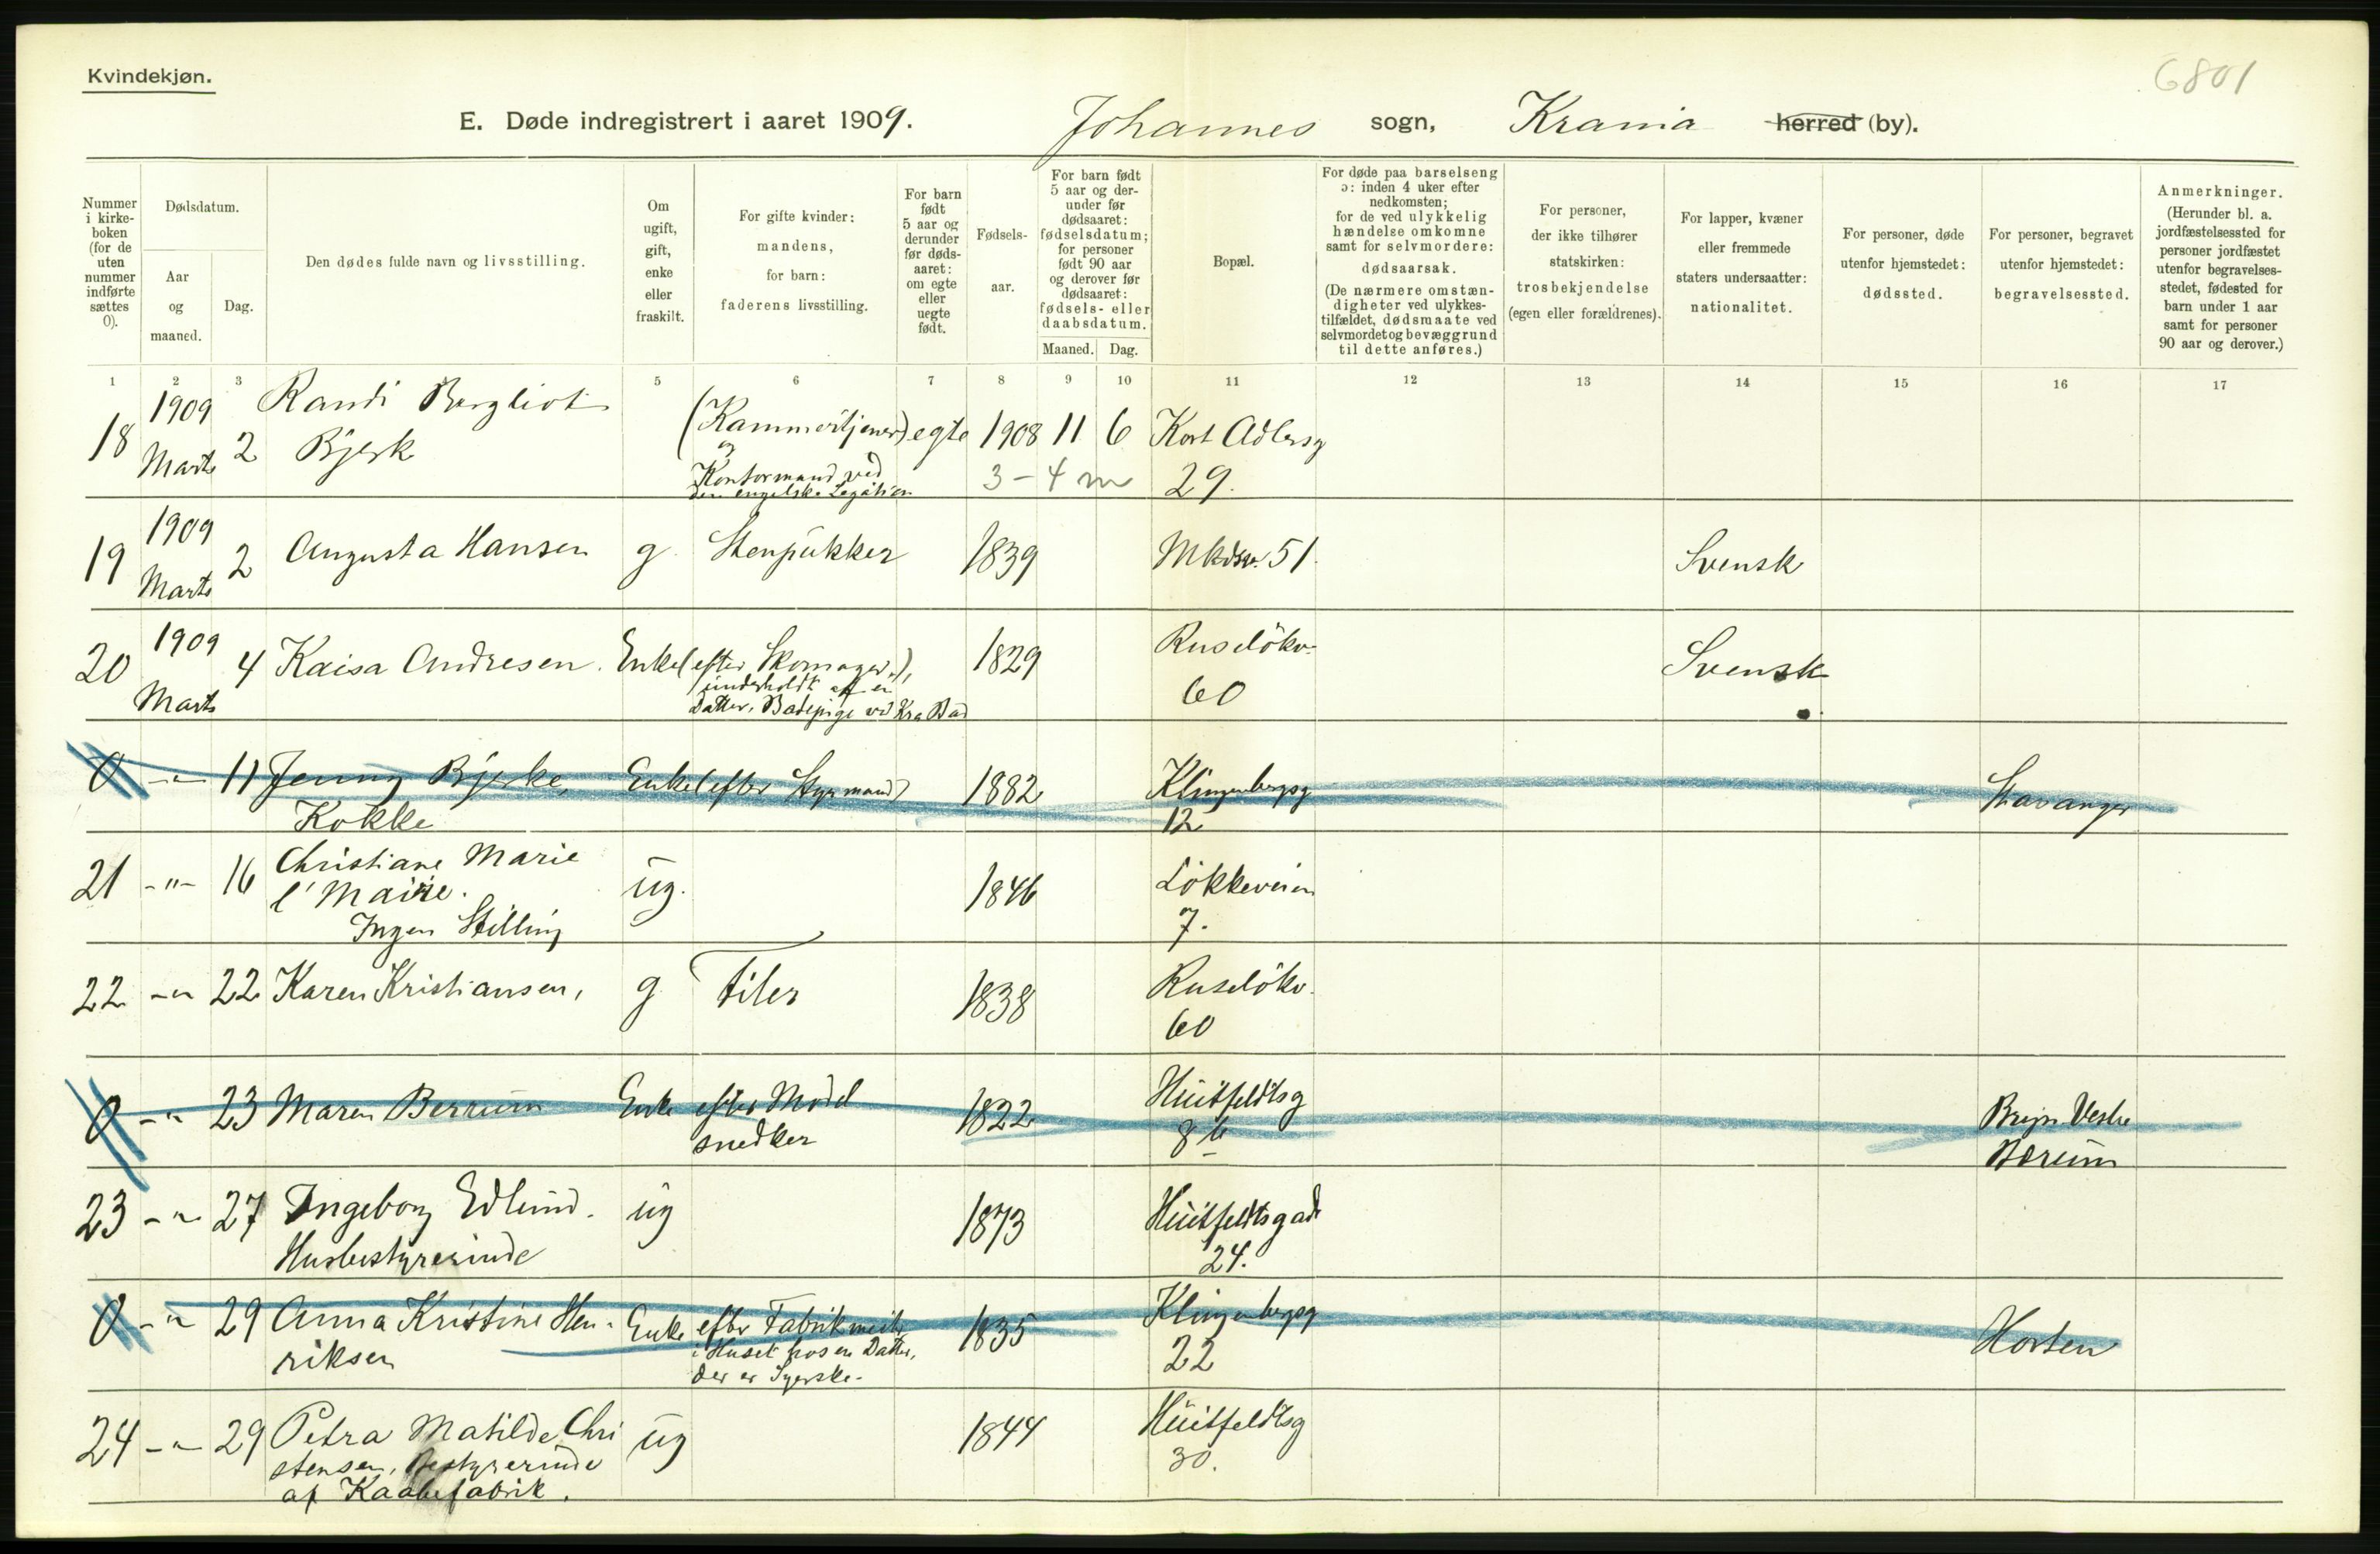 Kvindekjøn.
6801
E. Døde indregistrert i aaret 1909. Johannes sogn, Krania herred (by).
Nummer i kirke-boken (for de uten nummer indførte sættes 0).
Dødsdatum.
Aar og maaned.
Dag.
Den dødes fulde navn og livsstilling.
Om ugift, gift, enke eller fraskilt.
For gifte kvinder: mandens, for barn: faderens livsstilling.
For barn født 5 aar og derunder før døds-aaret: om egte eller uegte født.
Fødsels-aar.
For barn født 5 aar og der-under før dødsaaret: fødselsdatum; for personer født 90 aar og derover før dødsaaret: fødsels- eller daabsdatum.
Maaned. Dag.
Bopæl.
For døde paa barselseng ɔ: inden 4 uker efter nedkomsten; for de ved ulykkelig hændelse omkomne samt for selvmordere: dødsaarsak. (De nærmere omstæn-digheter ved ulykkes-tilfældet, dødsmaate ved selvmordet og bevæggrund til dette anføres.)
For personer, der ikke tilhører statskirken: trosbekjendelse (egen eller forældrenes).
For lapper, kvæner eller fremmede staters undersaatter: nationalitet.
For personer, døde utenfor hjemstedet: dødssted.
For personer, begravet utenfor hjemstedet: begravelsessted.
Anmerkninger. (Herunder bl. a. jordfæstelsessted for personer jordfæstet utenfor begravelses-stedet, fødested for barn under 1 aar samt for personer 90 aar og derover.)
1 2 3 5 6 7 8 9 10 11 12 13 14 15 16 17
18 1909 Marts 2 Randi Bergliot Bjerk (Kammertjener) og Kontormand ved den engelske Legation egte 1908 11 6 Kort Adlersg 29.
3-4 m
19 1909 Marts 2 Augusta Hansen g. Stenpukker 1839 Mkdsv. 51. Svensk
20 1909 Marts 4 Kaisa Andresen. Enke (efter Skomager), underholdt af en Datter, Badepige ved Kra Bad 1829 Ruseløkv. 60 Svensk
0 -"- 11 Jenny Bjerke, Kokke Enke (efter Styrmand) 1882 Klingenbergsg 12 Stavanger
21 -"- 16 Christiane Marie l'Maire. Ingen Stilling ug. 1846 Løkkeveien 7.
22 -"- 22 Karen Kristiansen, g Filer 1838 Ruseløkv. 60
0 -"- 23 Maren Berrum Enke efter Modelsnedker 1822 Huitfeldtsg 8 b Bryn Vestre Bærum
23 -"- 27 Ingeborg Edlund. Husbestyrerinde ug 1873 Huitfeldtsgade 24.
0 -"- 29 Anna Kristine Henriksen Enke efter Fabrikmester i Huset hos en Datter, der er Syerske. 1835 Klingenbergsg 22 Horten
24 -"- 29 Petra Matilde Christensen, Bestyrerinde af Kaabefabrik. ug 1844 Huitfeldtsg 30.